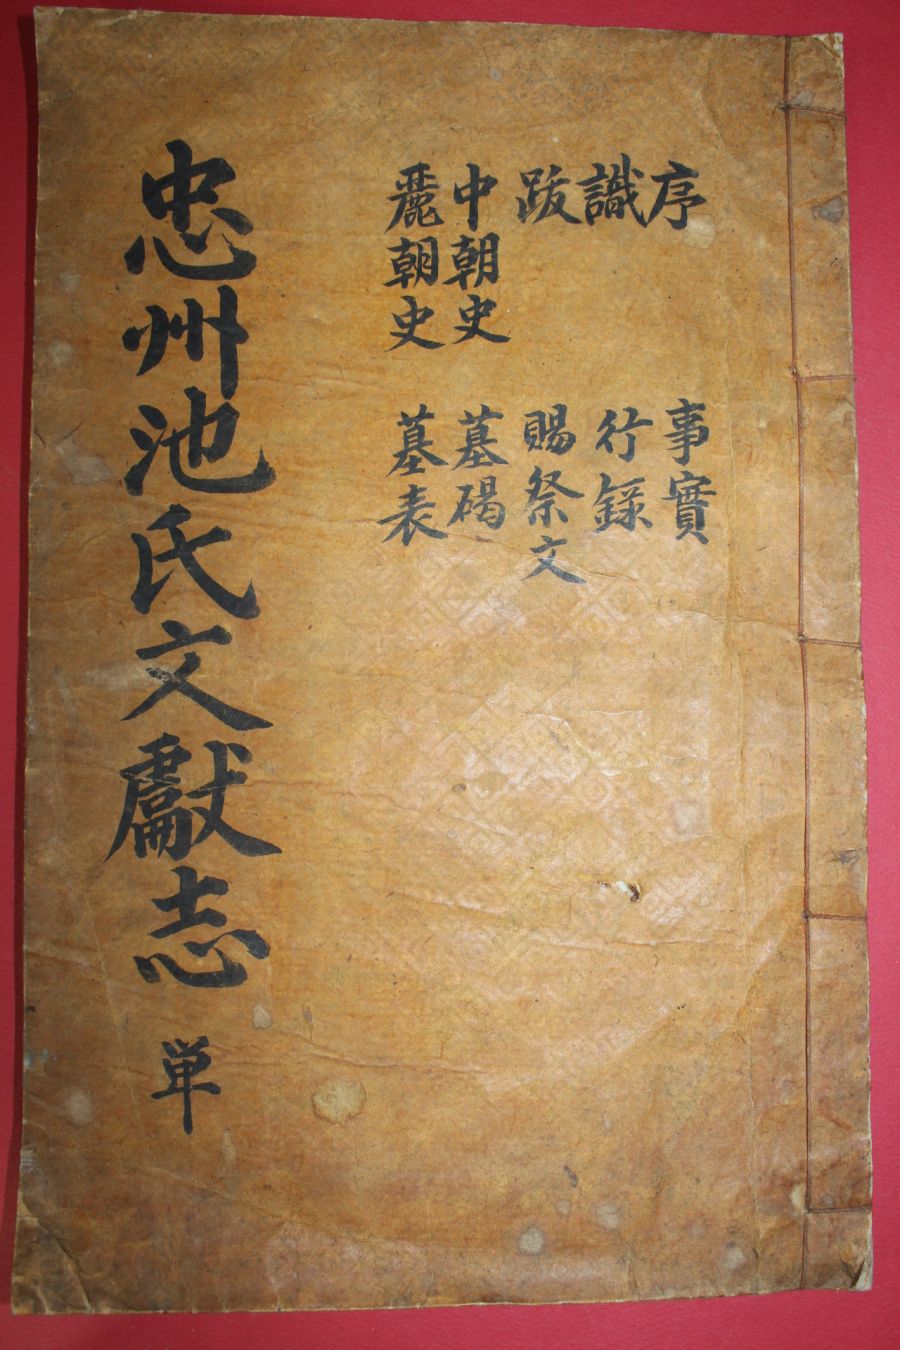 序
識
跋
中朝史
麗朝史
事實
行錄
賜祭文
墓碣
墓表
忠州池氏文獻志 単